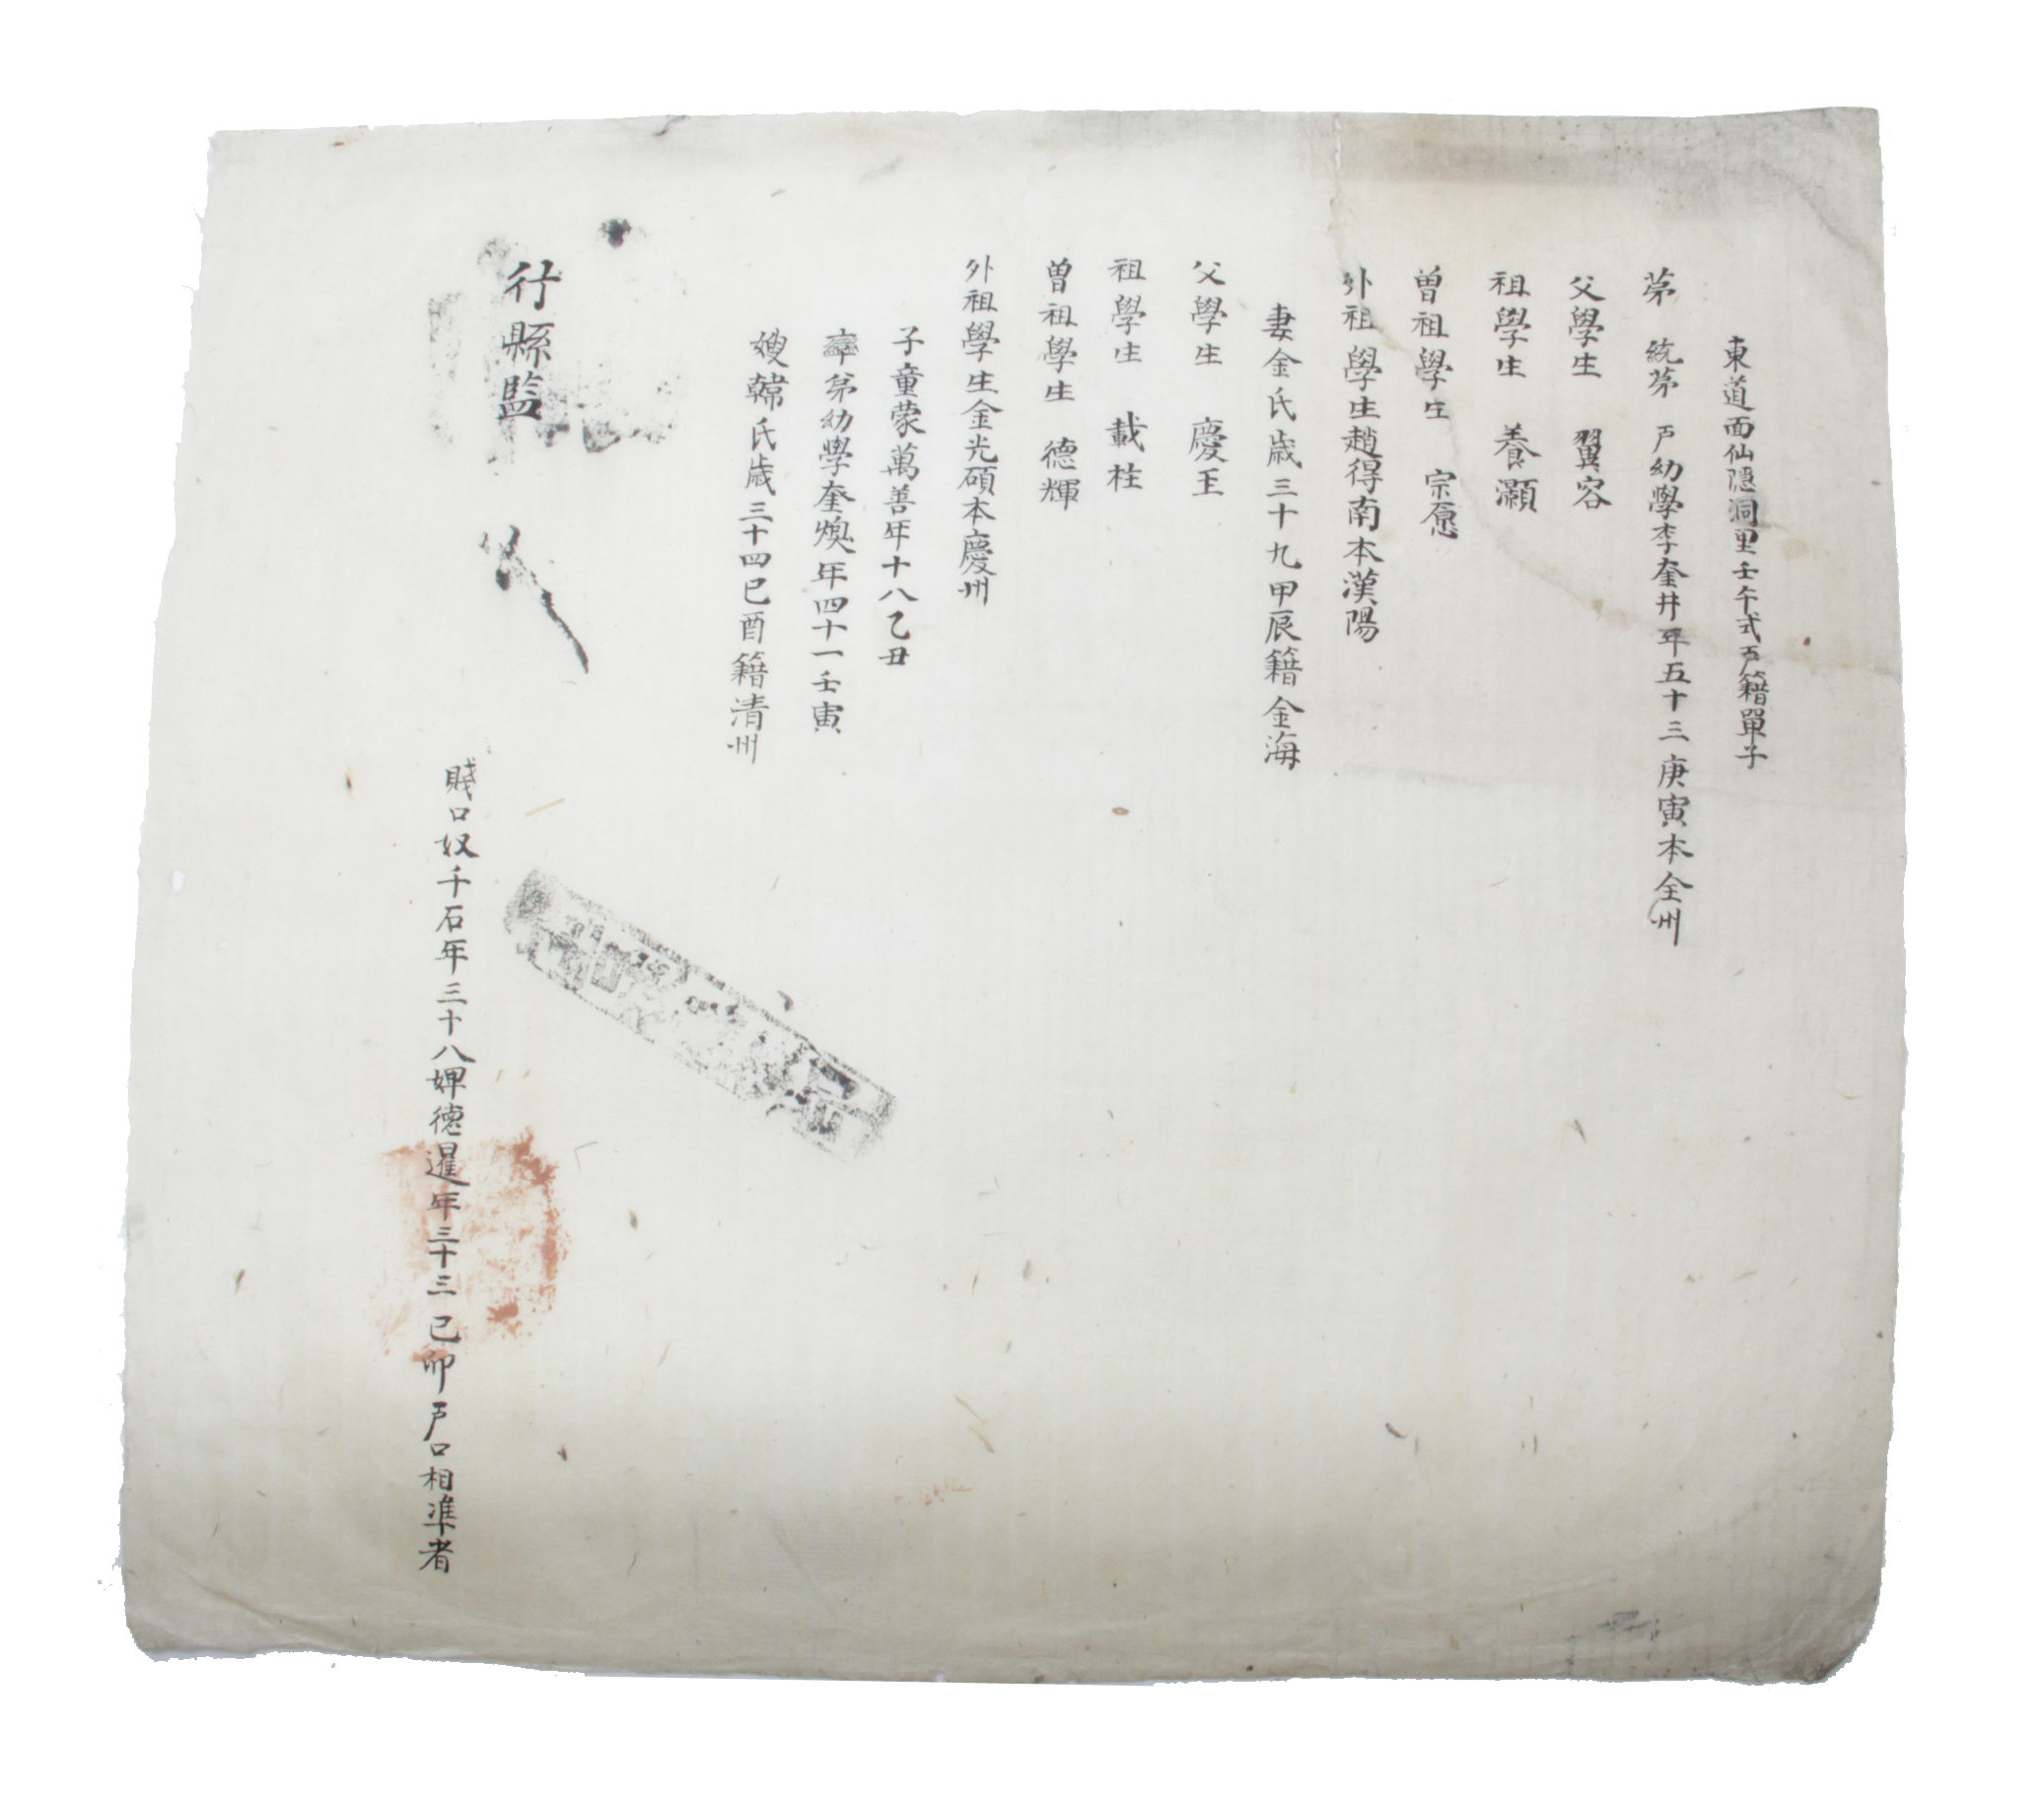 東道面仙隱洞里壬午式戶籍單子
第 統第 戶幼學李奎井年五十三庚寅本全州
父學生 翼容
祖學生 養灝
曾祖學生 宗愿
外祖學生趙得南本漢陽
妻金氏歲三十九甲辰籍金海
父學生 慶玉
祖學生 載柱
曾祖學生 德輝
外祖學生金光碩本慶州
子童蒙萬善年十八乙丑
率弟幼學奎煥年四十一壬寅
嫂韓氏歲三十四己酉籍清州
行縣監
賤口奴千石年三十八婢德暹年三十三己卯戶口相準者